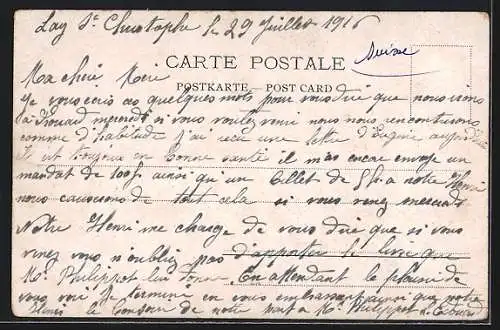 Lay St Christophe le 29 Juillet 1916
Suisse
CARTE POSTALE
POSTKARTE — POST CARD
Ma cheri Mere
Je vous ecris ces quelques mots pour vous dire que nous irons
a mecredi si vous voulez venir nous nous rencontrerons
comme d'habitude j'ai recu une lettre d'Eugene
Il est toujours en bonne sante il m'as encore envoye un
mandat de 100f ainsi qu'un billet de 5f a notre Henri
nous causerons de tout cela si vous venez mecredi
Notre Henri me charge de vous dire que si vous
venez vous n'oubliez pas d'apporter le livre que
Mr Philippot lui donne. En attendant le plaisir de
vous voir je termine en vous embrassant ainsi que notre
le bonjour de notre part a Mr Philippot